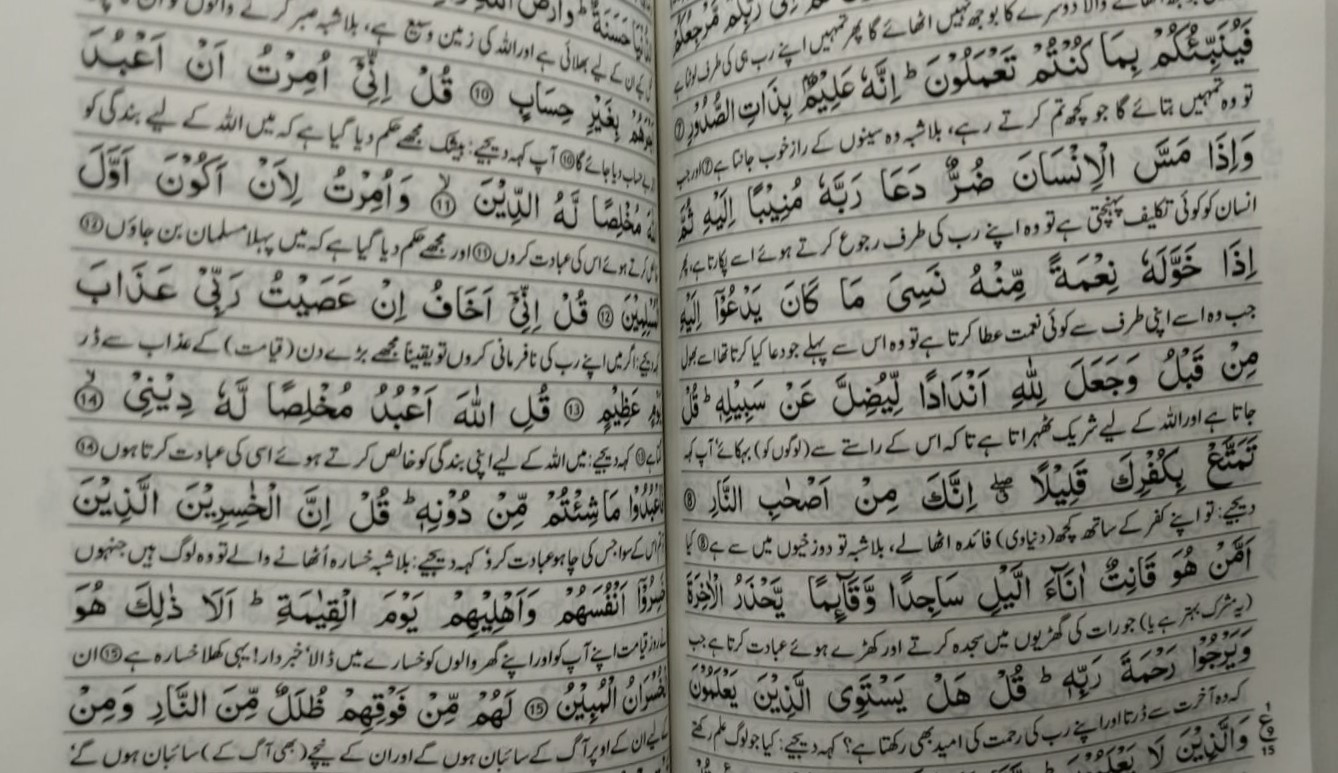 فَيُنَبِّئُكُمْ بِمَا كُنْتُمْ تَعْمَلُوْنَ ؕ اِنَّهٗ عَلِيْمٌۢ بِذَاتِ الصُّدُوْرِ ⑦
تو وہ تمہیں بتائے گا جو کچھ تم کرتے رہے، بلاشبہ وہ سینوں کے راز خوب جانتا ہے ⑦ اور جب
وَاِذَا مَسَّ الْاِنْسَانَ ضُرٌّ دَعَا رَبَّهٗ مُنِيْبًا اِلَيْهِ ثُمَّ
انسان کو کوئی تکلیف پہنچتی ہے تو وہ اپنے رب کی طرف رجوع کرتے ہوئے اسے پکارتا ہے، پھر
اِذَا خَوَّلَهٗ نِعْمَةً مِّنْهُ نَسِيَ مَا كَانَ يَدْعُوْٓا اِلَيْهِ
جب وہ اسے اپنی طرف سے کوئی نعمت عطا کرتا ہے تو وہ اس سے پہلے جو دعا کیا کرتا تھا اسے بھول
مِنْ قَبْلُ وَجَعَلَ لِلّٰهِ اَنْدَادًا لِّيُضِلَّ عَنْ سَبِيْلِهٖ ؕ قُلْ
جاتا ہے اور اللہ کے لیے شریک ٹھہراتا ہے تاکہ اس کے راستے سے (لوگوں کو) بہکائے، آپ کہہ
تَمَتَّعْ بِكُفْرِكَ قَلِيْلًا ۖۗ اِنَّكَ مِنْ اَصْحٰبِ النَّارِ ⑧
دیجیے: تو اپنے کفر کے ساتھ کچھ (دنیاوی) فائدہ اٹھا لے، بلاشبہ تو دوزخیوں میں سے ہے ⑧ کیا
اَمَّنْ هُوَ قَانِتٌ اٰنَآءَ الَّيْلِ سَاجِدًا وَّقَآئِمًا يَّحْذَرُ الْاٰخِرَةَ
(یہ مشرک بہتر ہے یا) جو رات کی گھڑیوں میں سجدہ کرتے اور کھڑے ہوئے عبادت کرتا ہے جب
وَيَرْجُوْا رَحْمَةَ رَبِّهٖ ؕ قُلْ هَلْ يَسْتَوِى الَّذِيْنَ يَعْلَمُوْنَ
کہ وہ آخرت سے ڈرتا اور اپنے رب کی رحمت کی امید بھی رکھتا ہے؟ کہہ دیجیے: کیا جو لوگ علم رکھتے
وَالَّذِيْنَ لَا يَعْلَمُوْنَ
۱
ع
9
15
حَسَنَةٌ ؕ وَاَرْضُ اللّٰهِ
کے لیے بھلائی ہے اور اللہ کی زمین وسیع ہے، بلاشبہ صبر کرنے والوں کو
بِغَيْرِ حِسَابٍ ⑩ قُلْ اِنِّيْٓ اُمِرْتُ اَنْ اَعْبُدَ
حساب دیا جائے گا ⑩ آپ کہہ دیجیے: بیشک مجھے حکم دیا گیا ہے کہ میں اللہ کے لیے بندگی کو
مُخْلِصًا لَّهُ الدِّيْنَ ⑪ وَاُمِرْتُ لِاَنْ اَكُوْنَ اَوَّلَ
کرتے ہوئے اس کی عبادت کروں ⑪ اور مجھے حکم دیا گیا ہے کہ میں پہلا مسلمان بن جاؤں ⑫
الْمُسْلِمِيْنَ ⑫ قُلْ اِنِّيْٓ اَخَافُ اِنْ عَصَيْتُ رَبِّيْ عَذَابَ
دیجیے: اگر میں اپنے رب کی نافرمانی کروں تو یقیناً مجھے بڑے دن (قیامت) کے عذاب سے ڈر
يَوْمٍ عَظِيْمٍ ⑬ قُلِ اللّٰهَ اَعْبُدُ مُخْلِصًا لَّهٗ دِيْنِيْ ⑭
⑬ کہہ دیجیے: میں اللہ کے لیے اپنی بندگی کو خالص کرتے ہوئے اسی کی عبادت کرتا ہوں ⑭
فَاعْبُدُوْا مَا شِئْتُمْ مِّنْ دُوْنِهٖ ؕ قُلْ اِنَّ الْخٰسِرِيْنَ الَّذِيْنَ
اس کے سوا جس کی چاہو عبادت کرو، کہہ دیجیے: بلاشبہ خسارہ اٹھانے والے تو وہ لوگ ہیں جنہوں
خَسِرُوْٓا اَنْفُسَهُمْ وَاَهْلِيْهِمْ يَوْمَ الْقِيٰمَةِ ؕ اَلَا ذٰلِكَ هُوَ
روز قیامت اپنے آپ کو اور اپنے گھر والوں کو خسارے میں ڈالا، خبردار! یہی کھلا خسارہ ہے ⑮ ان
الْخُسْرَانُ الْمُبِيْنُ ⑮ لَهُمْ مِّنْ فَوْقِهِمْ ظُلَلٌ مِّنَ النَّارِ وَمِنْ
کے لیے ان کے اوپر آگ کے سائبان ہوں گے اور ان کے نیچے (بھی آگ کے) سائبان ہوں گے